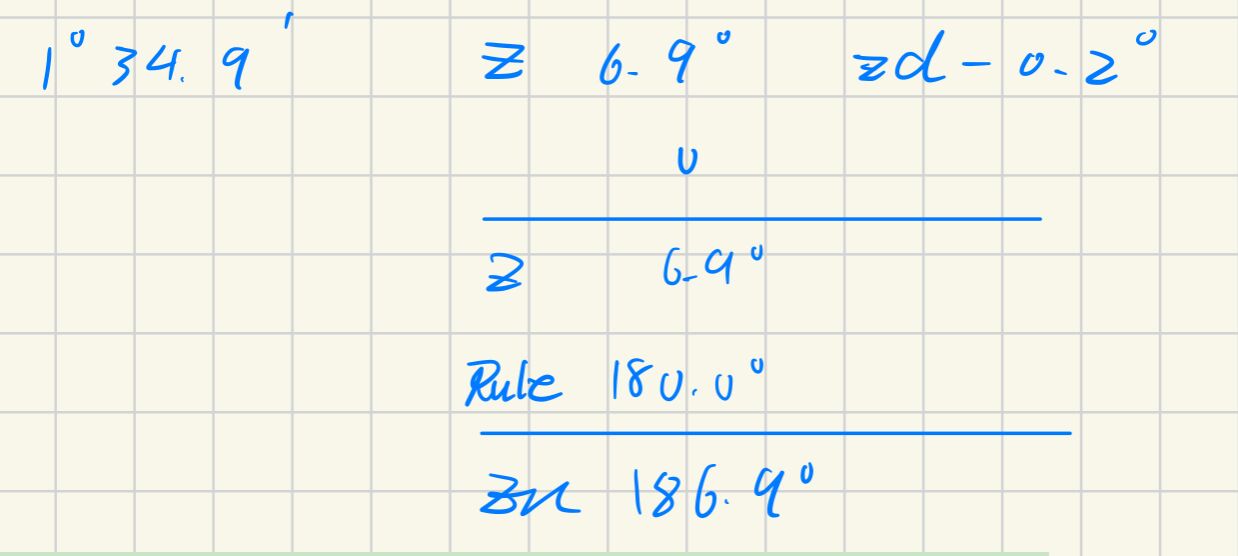 1° 34.9' Z 6.9° zd - 0.2°
0
Z 6.9°
Rule 180.0°
Zn 186.9°